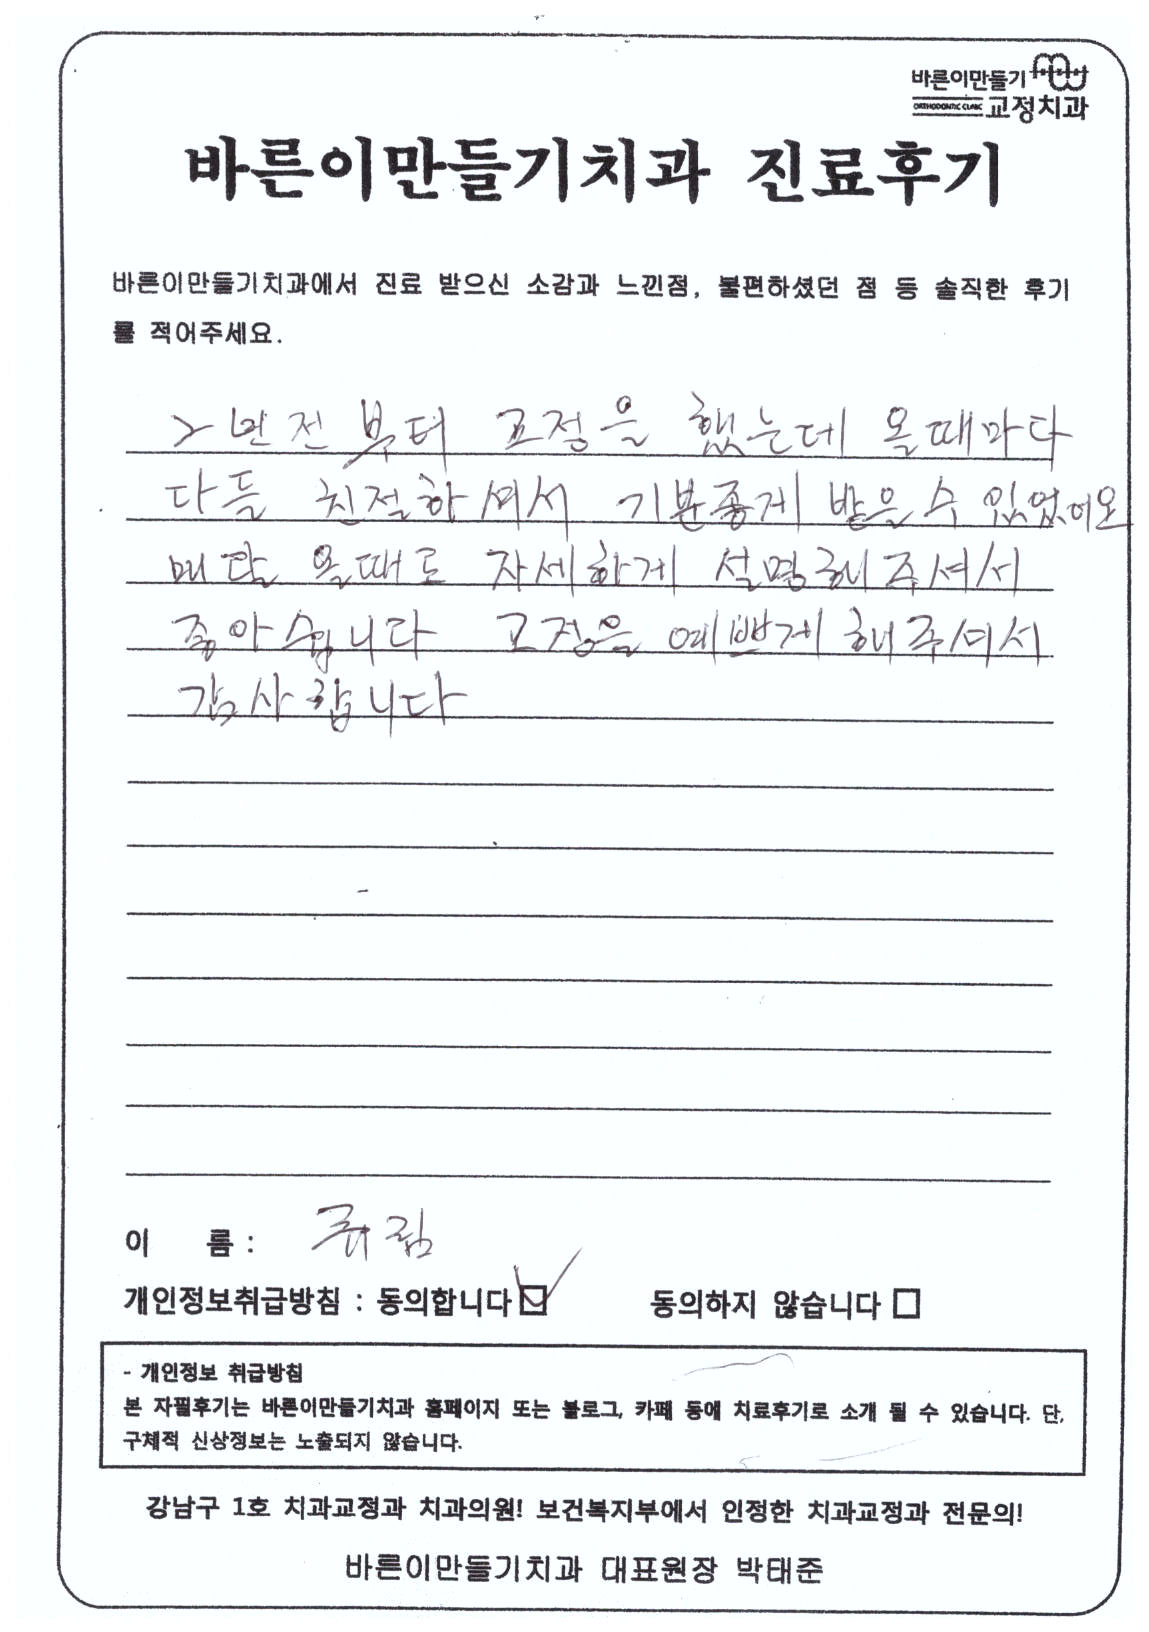 바른이만들기
ORTHODONTIC CLINIC 교정치과
바른이만들기치과 진료후기
바른이만들기치과에서 진료 받으신 소감과 느낀점, 불편하셨던 점 등 솔직한 후기
를 적어주세요.
2년 전 부터 교정을 했는데 올때마다
다들 친절하셔서 기분좋게 받을 수 있었어요
매달 올때도 자세하게 설명해주셔서
좋아습니다 교정을 예쁘게 해주셔서
감사합니다
이 름 :
개인정보취급방침 : 동의합니다 동의하지 않습니다
- 개인정보 취급방침
본 자필후기는 바른이만들기치과 홈페이지 또는 블로그, 카페 등에 치료후기로 소개 될 수 있습니다. 단,
구체적 신상정보는 노출되지 않습니다.
강남구 1호 치과교정과 치과의원! 보건복지부에서 인정한 치과교정과 전문의!
바른이만들기치과 대표원장 박태준